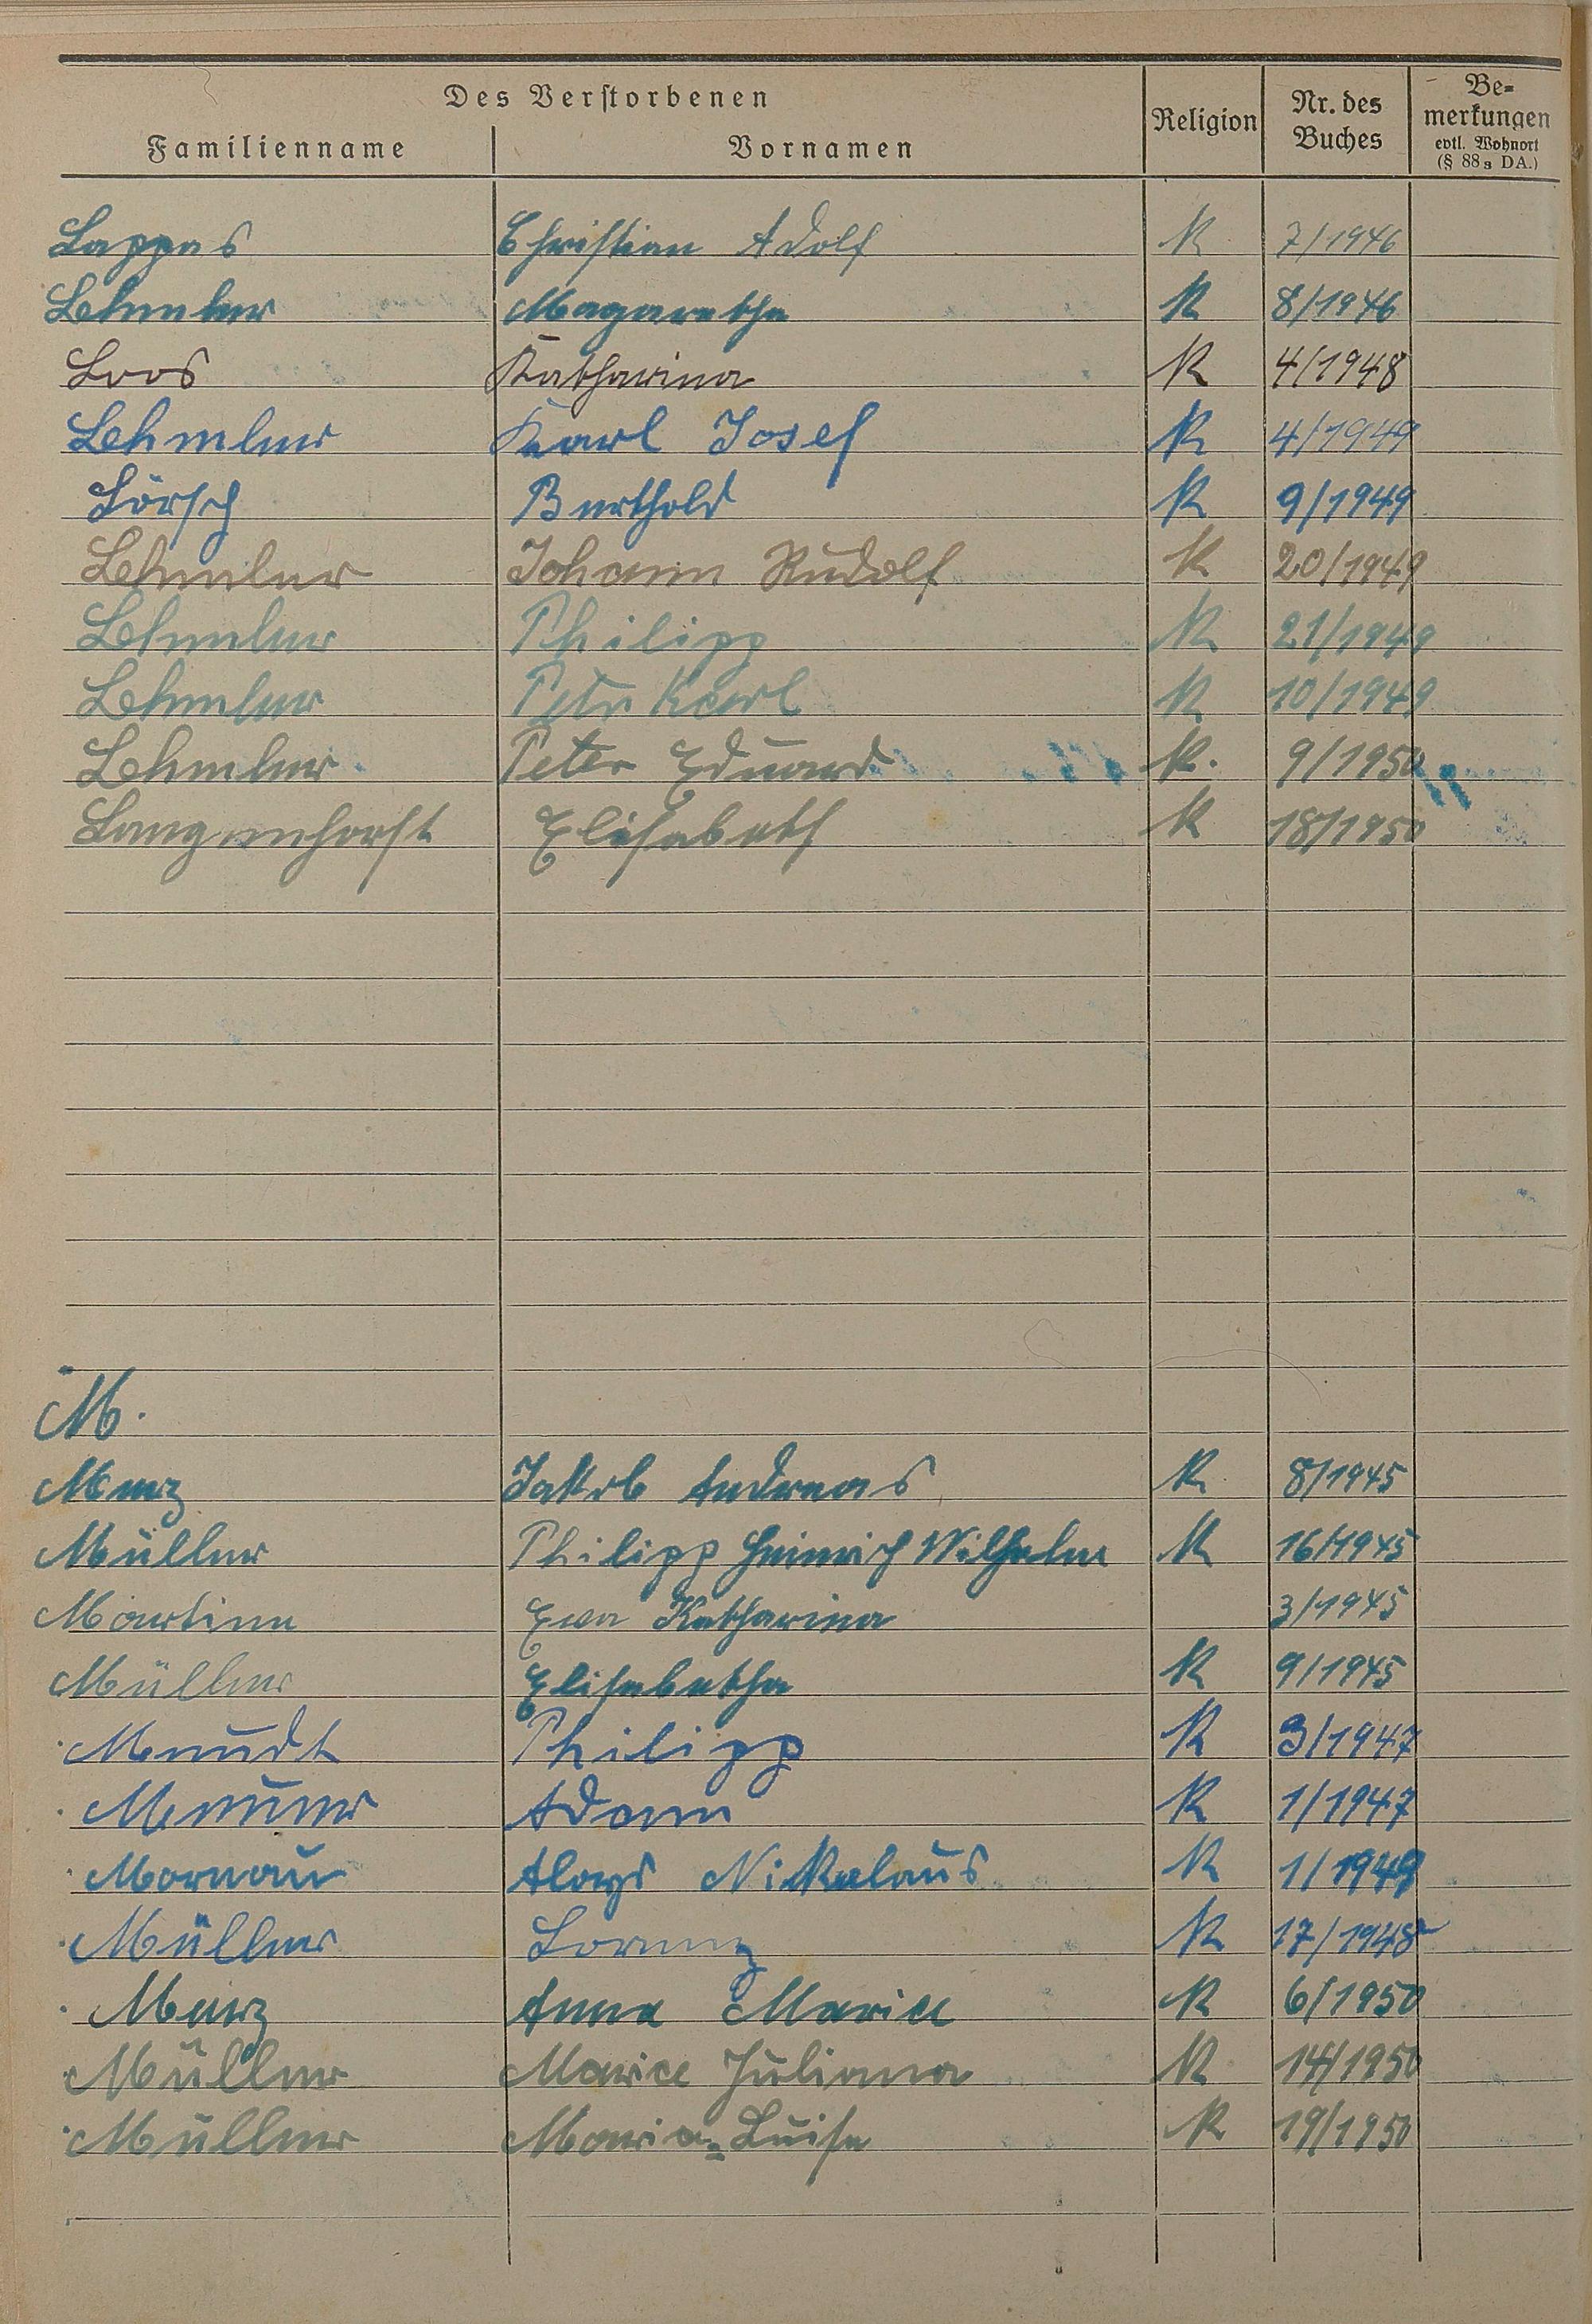 Des Verstorbenen
Familienname Vornamen Religion Nr. des Buches Be-merkungen evtl. Wohnort (§ 88 3 DA.)
Lappas Christian Adolf K 7/1946
Lehmler Magaretha K 8/1946
Loos Katharina K 4/1948
Lehmler Karl Josef K 4/1949
Lörsch Berthold K 9/1949
Lehmler Johann Rudolf K 20/1949
Lehmler Philipp K 21/1949
Lehmler Peter Karl K 10/1949
Lehmler Peter Eduard K. 9/1950
Langenhorst Elisabeth K 18/1950
M.
Merz Jakob Andreas K. 8/1945
Müller Philipp Heinrich Wilhelm K 16/1945
Martine Eva Katharina 3/1945
Müller Elisabetha K 9/1945
Meudt Philipp K 3/1947
Adam K 1/1947
Mornau Aloys Nikolaus K 1/1949
Müller Lorenz K 17/1948
Merz Anna Maria K 6/1950
Müller Maria Juliana K 14/1950
Müller Maria-Luise K 19/1950